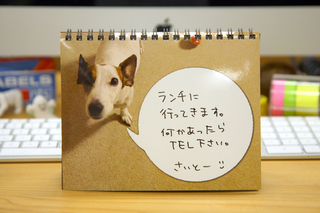 LABELS
ランチに
行ってきます。
何かあったら
TEL下さい。
さいとー